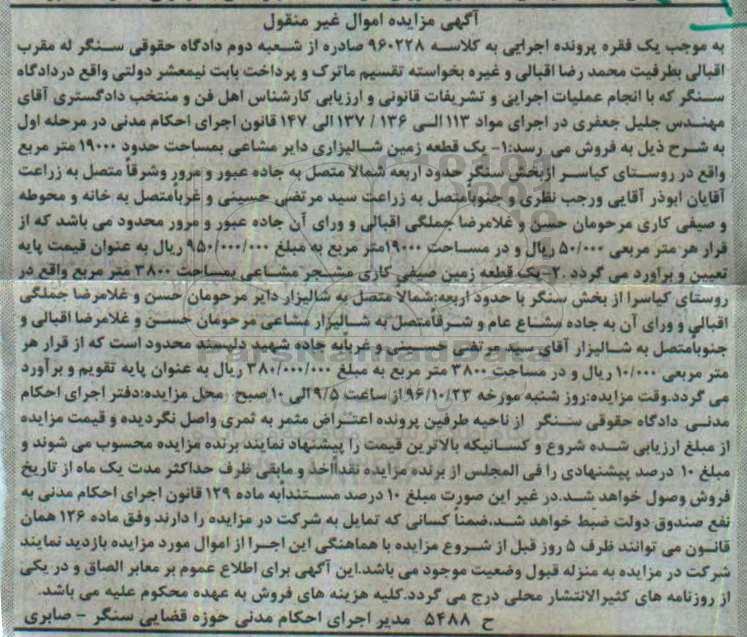 آگهی مزایده اموال غیر منقول
به موجب یک فقره پرونده اجرایی به کلاسه ۹۶۰۲۲۸ صادره از شعبه دوم دادگاه حقوقی سنگر له مقرب
اقبالی بطرفیت محمد رضا اقبالی و غیره بخواسته تقسیم ماترک و پرداخت بابت نیمعشر دولتی واقع دردادگاه
سنگر که با انجام عملیات اجرایی و تشریفات قانونی و ارزیابی کارشناس اهل فن و منتخب دادگستری آقای
مهندس جلیل جعفری در اجرای مواد ۱۱۳ الی ۱۳۶ / ۱۳۷ الی ۱۴۷ قانون اجرای احکام مدنی در مرحله اول
به شرح ذیل به فروش می رسد:۱- یک قطعه زمین شالیزاری دایر مشاعی بمساحت حدود ۱۹۰۰۰ متر مربع
واقع در روستای کیاسر ازبخش سنگر حدود اربعه شمالا متصل به جاده عبور و مرور وشرقاً متصل به زراعت
آقایان ابوذر آقایی ورجب نظری و جنوباًمتصل به زراعت سید مرتضی حسینی و غرباًمتصل به خانه و محوطه
و صیفی کاری مرحومان حسن و غلامرضا جملگی اقبالی و ورای آن جاده عبور و مرور محدود می باشد که از
قرار هر متر مربعی ۵۰/۰۰۰ ریال و در مساحت ۱۹۰۰۰متر مربع به مبلغ ۹۵۰/۰۰۰/۰۰۰ ریال به عنوان قیمت پایه
تعیین و براورد می گردد .۲-یک قطعه زمین صیفی کاری مشجر مشاعی بمساحت ۳۸۰۰ متر مربع واقع در
روستای کیاسرا از بخش سنگر با حدود اربعه:شمالاً متصل به شالیزار دایر مرحومان حسن و غلامرضا جملگی
اقبالی و ورای آن به جاده مشاع عام و شرقاًمتصل به شالیزار مشاعی مرحومان حسن و غلامرضا اقبالی و
جنوباًمتصل به شالیزار آقای سید مرتضی حسینی و غرباًبه جاده شهید دلپسند محدود است که از قرار هر
متر مربعی ۱۰/۰۰۰ ریال و در مساحت ۳۸۰۰ متر مربع به مبلغ ۳۸۰/۰۰۰/۰۰۰ ریال به عنوان پایه تقویم و برآورد
می گردد.وقت مزایده:روز شنبه مورخه ۹۶/۱۰/۲۳ ازساعت ۹/۵ الی ۱۰ صبح . محل مزایده:دفتر اجرای احکام
مدنی دادگاه حقوقی سنگر از ناحیه طرفین پرونده اعتراض مثمر به ثمری واصل نگردیده و قیمت مزایده
از مبلغ ارزیابی شده شروع و کسانیکه بالاترین قیمت را پیشنهاد نمایند برنده مزایده محسوب می شوند و
مبلغ ۱۰ درصد پیشنهادی را فی المجلس از برنده مزایده نقداًاخذ و مابقی ظرف حداکثر مدت یک ماه از تاریخ
فروش وصول خواهد شد.در غیر این صورت مبلغ ۱۰ درصد مستنداًبه ماده ۱۲۹ قانون اجرای احکام مدنی به
نفع صندوق دولت ضبط خواهد شد.ضمناً کسانی که تمایل به شرکت در مزایده را دارند وفق ماده ۱۲۶ همان
قانون می توانند ظرف ۵ روز قبل از شروع مزایده با هماهنگی این اجرا از اموال مورد مزایده بازدید نمایند
شرکت در مزایده به منزله قبول وضعیت موجود می باشد.این آگهی برای اطلاع عموم بر معابر الصاق و در یکی
از روزنامه های کثیرالانتشار محلی درج می گردد.کلیه هزینه های فروش به عهده محکوم علیه می باشد.
ح ۵۴۸۸ مدیر اجرای احکام مدنی حوزه قضایی سنگر - صابری